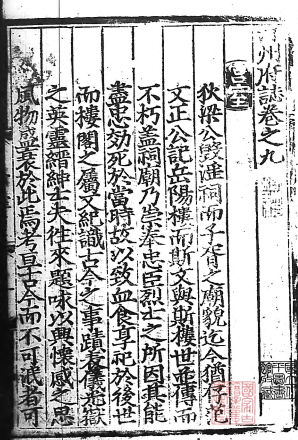 州府誌卷之九
狄梁公毀淫祠而子胥之廟貌迄今猶存范
文正公記岳陽樓而斯文與斯樓世並傳而
不朽蓋祠廟乃崇奉忠臣烈士之所因其能
盡忠効死於當時故以致血食享祀於後世
而樓閣之屬又紀識古今之事蹟着儀光嶽
之英靈縉紳士夫往來題咏以興懷感之思
風物盛衰於此焉考亘古今而不可泯者可